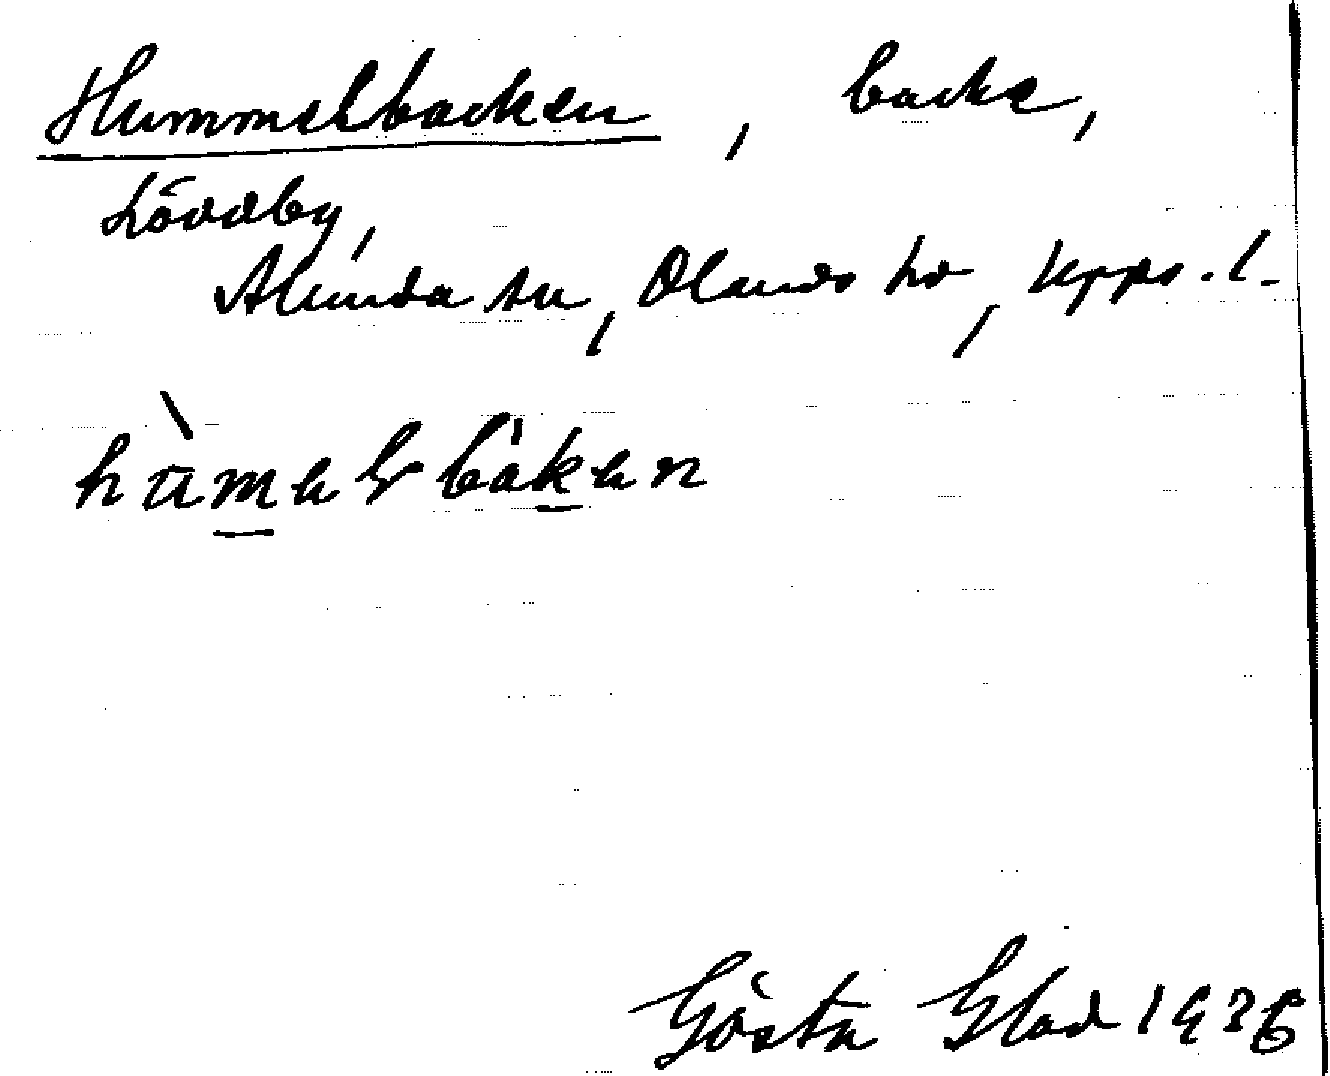 Hummelbacken, backe,
Lövdby,
Alunda sn, Olands hd, Upps. l.
hùmelbákен
Gösta Blad 1936